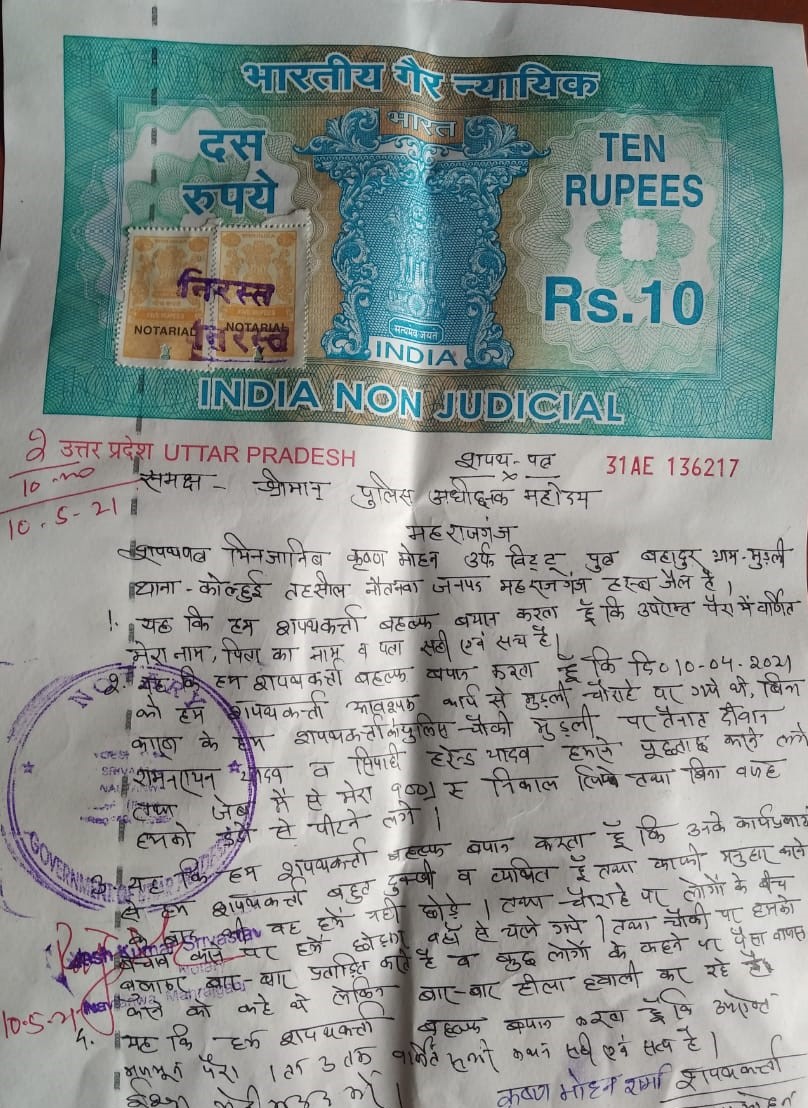 भारतीय गैर न्यायिक
भारत
दस
रुपये
TEN
RUPEES
Rs.10
FIVE RUPEES FIVE RUPEES
NOTARIAL NOTARIAL
निरस्त
निरस्त
सत्यमेव जयते
INDIA
INDIA NON JUDICIAL
उत्तर प्रदेश UTTAR PRADESH
31AE 136217
10.5-21
शपथ-पत्र
समक्ष - श्रीमान् पुलिस अधीक्षक महोदय
महराजगंज
शपथपत्र मिनजानिब कृष्ण मोहन उर्फ विट्टू पुत्र बहादुर ग्राम-मुड़ली
थाना - कोल्हुई तहसील नौतनवा जनपद महराजगंज हस्ब जैल है।
1. यह कि हम शपथकर्त्ता बहल्फ बयान करता हूँ कि उपरोक्त पैरा में वर्णित
मेरा नाम, पिता का नाम व पता सही एवं सच है।
2. यह कि हम शपथकर्त्ता बहल्फ बयान करता हूँ कि दि० 10-04-2021
को हम शपथकर्त्ता आवश्यक कार्य से मुड़ली चौराहे पर गये थे, बिना
कारण के हम शपथकर्त्ता को पुलिस-चौकी मुड़ली पर तैनात दीवान
रामनरायन यादव व सिपाही हरेन्द्र यादव हमसे पूछताछ करने लगे
तथा जेब में से मेरा निकाल लिये तथा बिना वजह
हमको डंडों से पीटने लगे।
3. यह कि हम शपथकर्त्ता बहल्फ बयान करता हूँ कि उनके
से हम शपथकर्त्ता बहुत दुःखी व व्यथित हूँ तथा काफी मनुहार करने
के बाद भी वह हमें नहीं छोड़े। तथा चौराहे पर लोगों के बीच
बचाव करने पर हमें छोड़कर वहाँ से चले गये। तथा चौकी पर हमको
बुलाकर बार-बार प्रताड़ित करते है व कुछ लोगों के कहने पर पैसा वापस
करने को कहे थे लेकिन बार-बार हीला हवाली कर रहे है।
4. यह कि हम शपथकर्त्ता बहल्फ बयान करता हूँ कि उपरोक्त
पैरा 1 ता 3 तक वर्णित सभी कथन सही एवं सत्य है।
ईश्वर मेरी मदद करे।
शपथकर्त्ता
कृष्ण मोहन शर्मा
NOTARY
GOVERNMENT OF
Rajesh Kumar Srivastav
Notary
Maharajganj
10.5-21